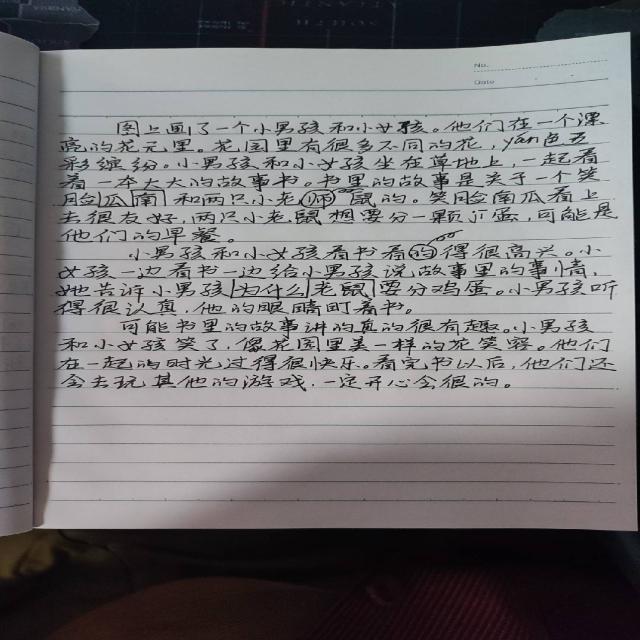 No.
Date
图上画了一个小男孩和小女孩。他们在一个漂
亮的花元里。花园里有很多不同的花，yán色五
彩缤纷。小男孩和小女孩坐在草地上，一起看
着一本大大的故事书。书里的故事是关于一个笑
脸瓜南和两只小老师鼠的。笑脸南瓜看上
去很友好，两只小老鼠想要分一颗几蛋，可能是
他们的早餐。
小男孩和小女孩看书看的得很高兴。小
女孩一边看书一边给小男孩说故事里的事情，
她告诉小男孩为什么老鼠要分鸡蛋。小男孩听
得很认真，他的眼睛盯着书。
可能书里的故事讲的真的很有趣。小男孩
和小女孩笑了，像花园里美一样的花笑容。他们
在一起的时光过得很快乐。看完书以后，他们还
会去玩其他的游戏，一定开心会很的。